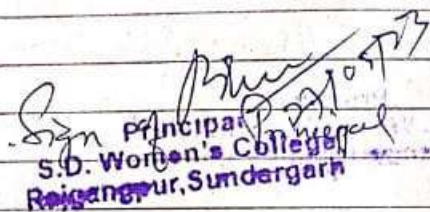 Sign of Principal
Principal
S.D. Women's College
Rajgangpur, Sundergarh